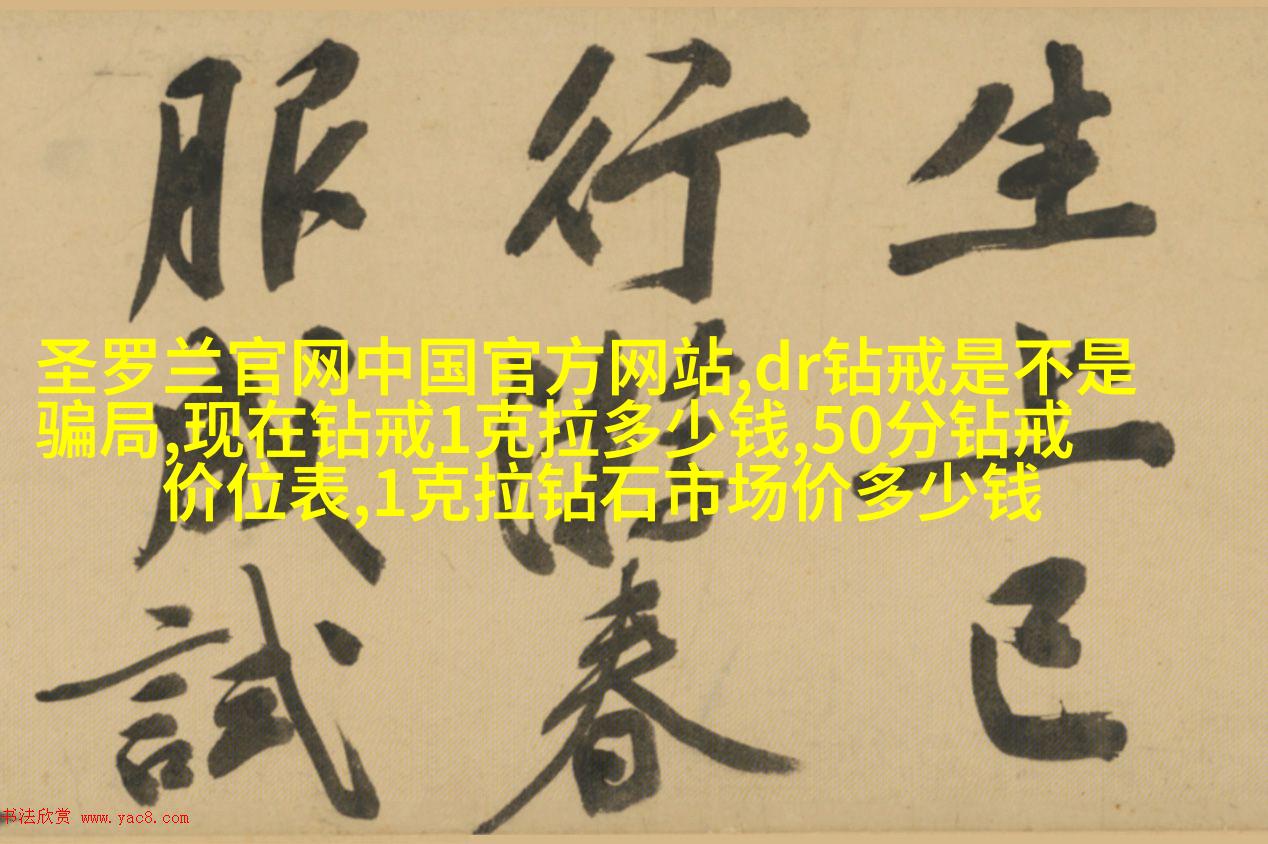 生上巳
行春
服成試
圣罗兰官网中国官方网站,dr钻戒是不是
骗局,现在钻戒1克拉多少钱,50分钻戒
价位表,1克拉钻石市场价多少钱
书法欣赏 www.yac8.com